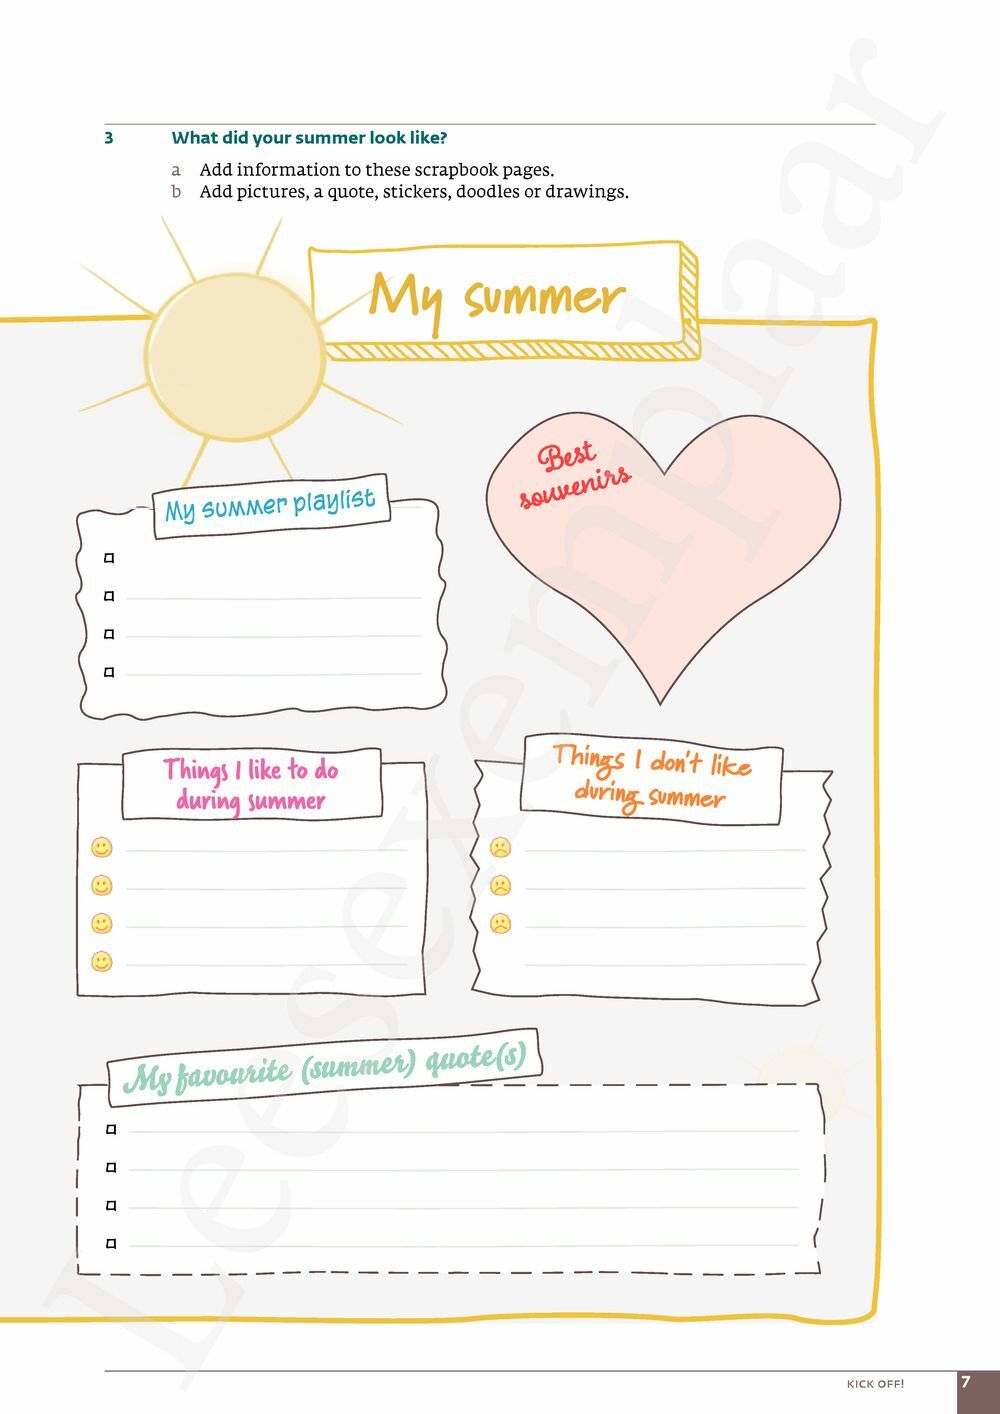 3 What did your summer look like?
a Add information to these scrapbook pages.
b Add pictures, a quote, stickers, doodles or drawings.
My summer
Best
souvenirs
My summer playlist
Things I like to do
during summer
Things I don't like
during summer
My favourite (summer) quote(s)
KICK OFF! 7
Leesexemplaar